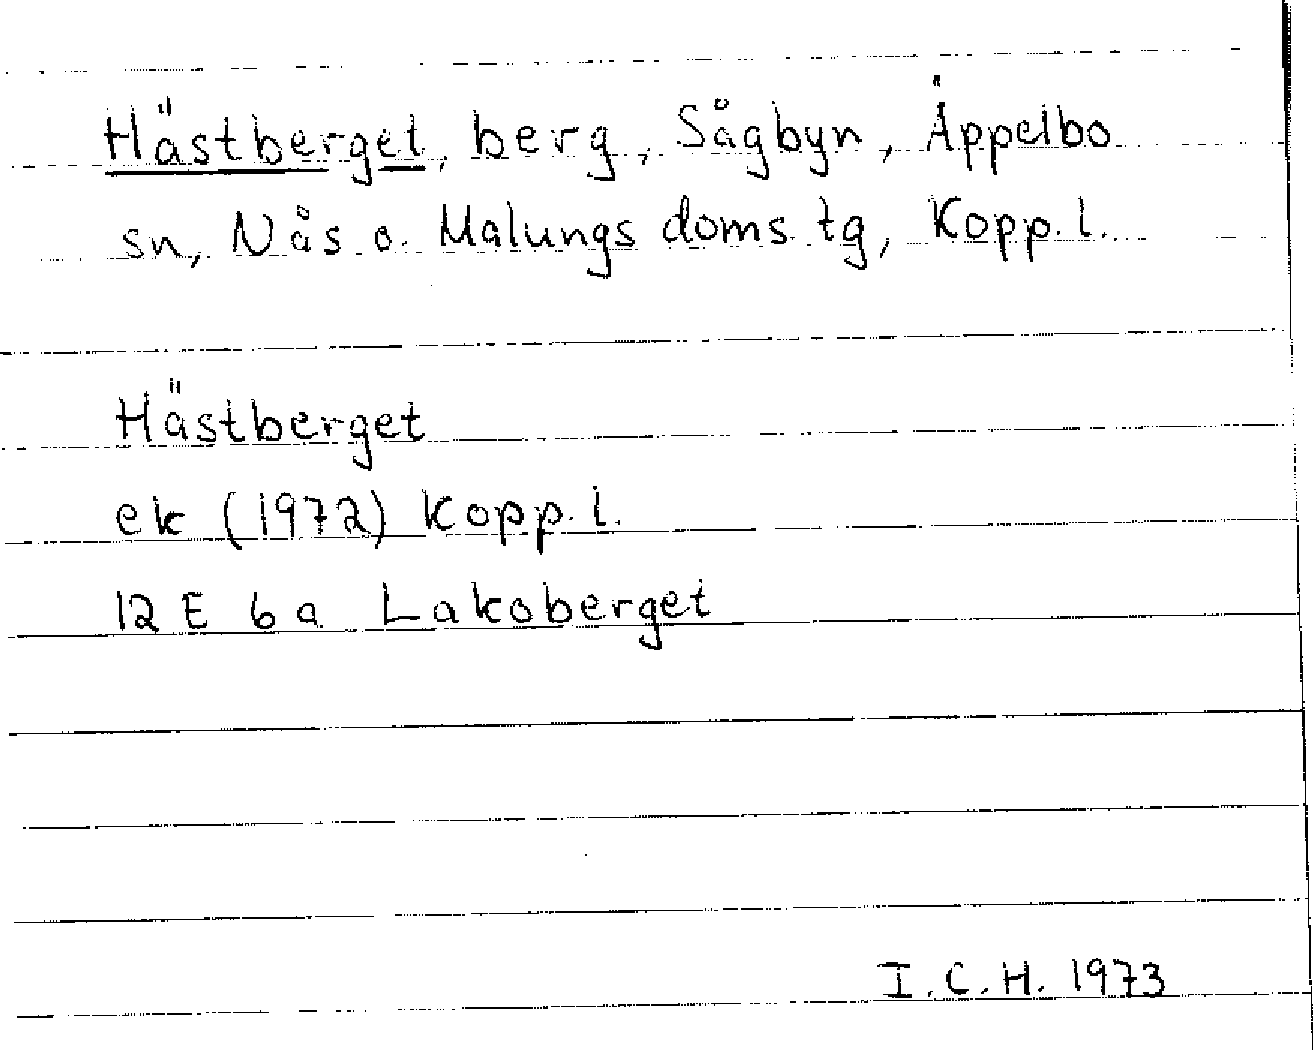 Hästberget, berg, Sågbyn, Äppelbo
sn, Nås o. Malungs doms. tg, Kopp. l.
Hästberget
ek (1972) Kopp. l.
12 E 6 a Lakoberget
I.C.H. 1973